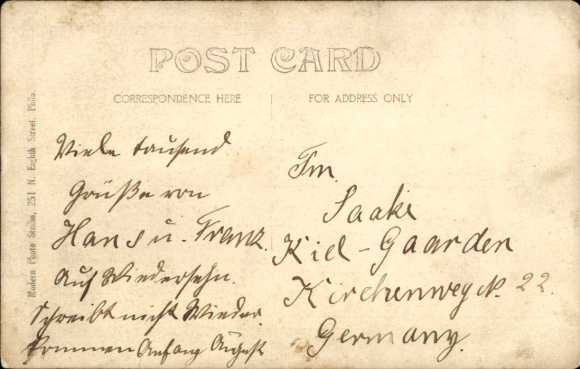 POST CARD
CORRESPONDENCE HERE
FOR ADDRESS ONLY
Modern Photo Studio, 251 N. Eighth Street, Phila.
Viele tausend
Grüße von
Hans u. Franz.
Auf Wiedersehn.
Schreibt nicht Wieder.
Kommen Anfang August
Fm.
Saake
Kiel-Gaarden
Kirchenweg N. 22.
Germany.